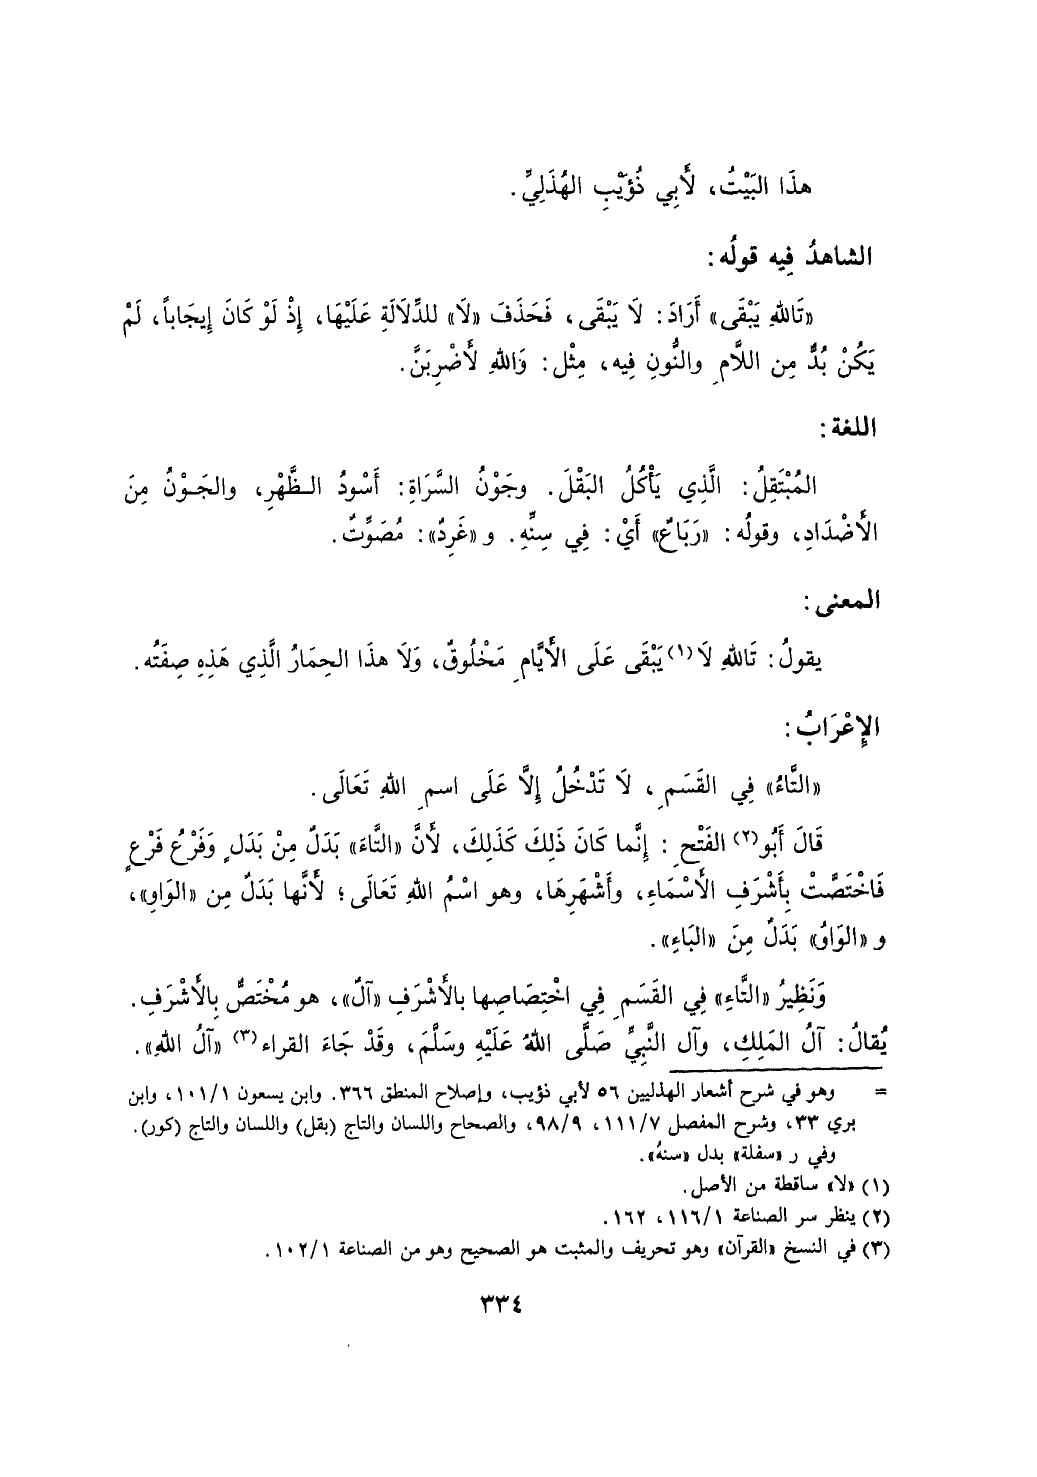 هذَا البَيْتُ، لأَبِي ذُؤَيْبٍ الهُذَلِيِّ.
الشاهدُ فِيه قولُه:
«تَاللهِ يَبْقَى» أَرَادَ: لَا يَبْقَى، فَحَذَفَ «لَا» للدِّلَالَةِ عَلَيْهَا، إِذْ لَوْ كَانَ إِيجَاباً، لَمْ
يَكُنْ بُدٌّ مِن اللَّامِ والنُّونِ فِيه، مِثْل: وَاللهِ لَأَضْرِبَنَّ.
اللغة:
المُبْتَقِلُ: الَّذِي يَأْكُلُ البَقْلَ. وجَوْنُ السَّرَاةِ: أَسْودُ الظَّهْرِ، والجَوْنُ مِنَ
الأَضْدَادِ، وقولُه: «رَبَاعٌ» أَيْ: فِي سِنِّهِ. و «غَرِدٌ»: مُصَوِّتٌ.
المعنى:
يقولُ: تَاللهِ لَا(١) يَبْقَى عَلَى الأَيَّامِ مَخْلُوقٌ، وَلَا هذَا الحِمَارُ الَّذِي هَذِهِ صِفَتُه.
الإِعْرَابُ:
«التَّاءُ» فِي القَسَمِ، لَا تَدْخُلُ إِلَّا عَلَى اسمِ اللهِ تَعَالَى.
قَالَ أَبُو(٢) الفَتْحِ: إِنَّما كَانَ ذَلِكَ كَذَلِكَ، لأَنَّ «التَّاءَ» بَدَلٌ مِنْ بَدَلٍ وَفَرْعُ فَرْعٍ
فَاخْتَصَّتْ بِأَشْرَفِ الأَسْمَاءِ، وأَشْهَرِهَا، وهو اسْمُ اللهِ تَعَالَى؛ لأَنَّها بَدَلٌ مِن «الوَاوِ»،
و «الوَاوُ» بَدَلٌ مِنَ «البَاءِ».
وَنَظِيرُ «التَّاءِ» فِي القَسَمِ فِي اخْتِصَاصِها بالأَشْرَفِ «آلٌ»، هو مُخْتَصٌّ بِالأَشْرَفِ.
يُقالُ: آلُ المَلِكِ، وآل النَّبِيِّ صَلَّى اللهُ عَلَيْهِ وسَلَّمَ، وقَدْ جَاءَ القراء(٣) «آلُ اللهِ».
= وهو في شرح أشعار الهذليين ٥٦ لأبي ذؤيب، وإصلاح المنطق ٣٦٦. وابن يسعون ١٠١/١، وابن
بري ٣٣، وشرح المفصل ١١١/٧، ٩٨/٩، والصحاح واللسان والتاج (بقل) واللسان والتاج (كور).
وفي ر «سفلة» بدل «سنهُ».
(١) «لا» ساقطة من الأصل.
(٢) ينظر سر الصناعة ١١٦/١، ١٦٢.
(٣) في النسخ «القرآن» وهو تحريف والمثبت هو الصحيح وهو من الصناعة ١٠٢/١.
٣٣٤